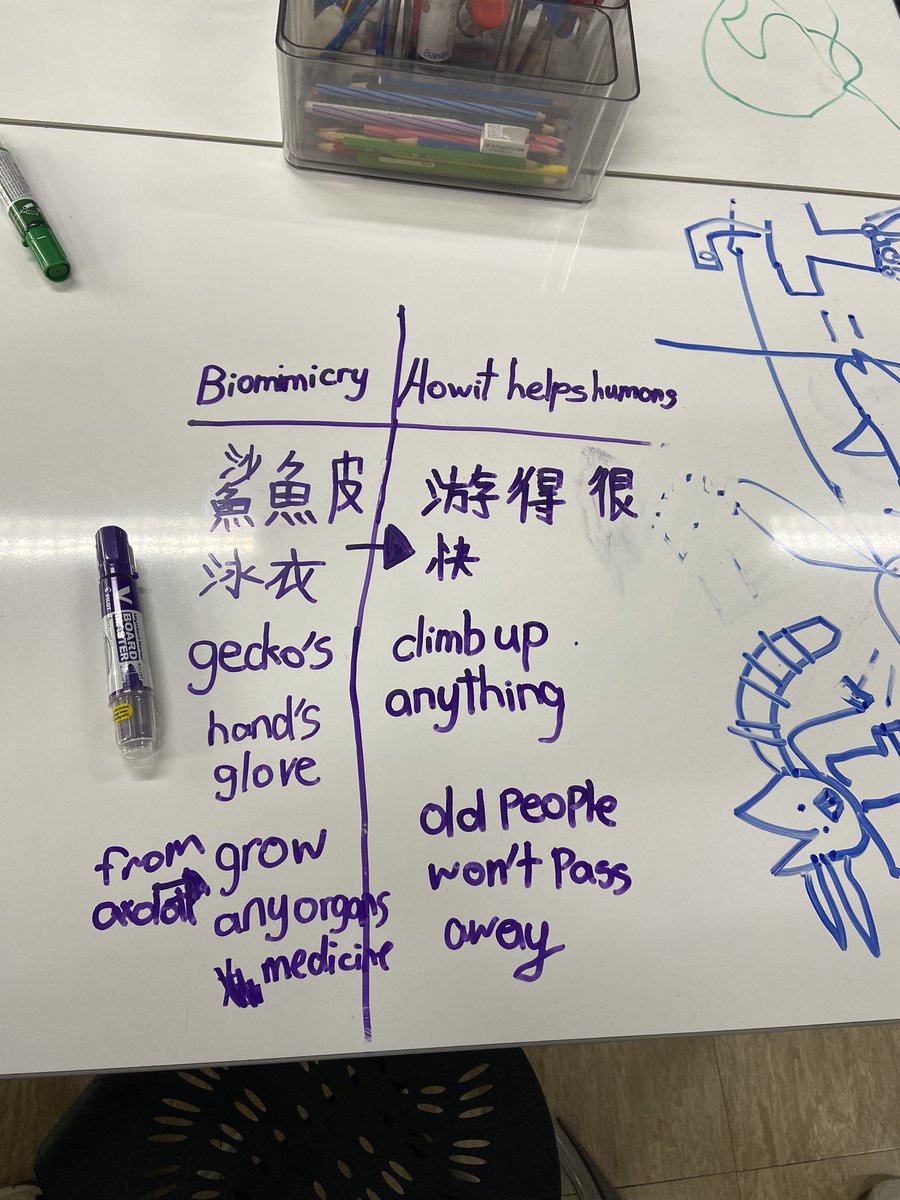 Biomimicry
How it helps humans
鯊魚皮
泳衣
游得很
快
gecko's
hand's
glove
climb up
anything
from
grow
any organs
medicine
old people
won't pass
away
V BOARD
MASTER